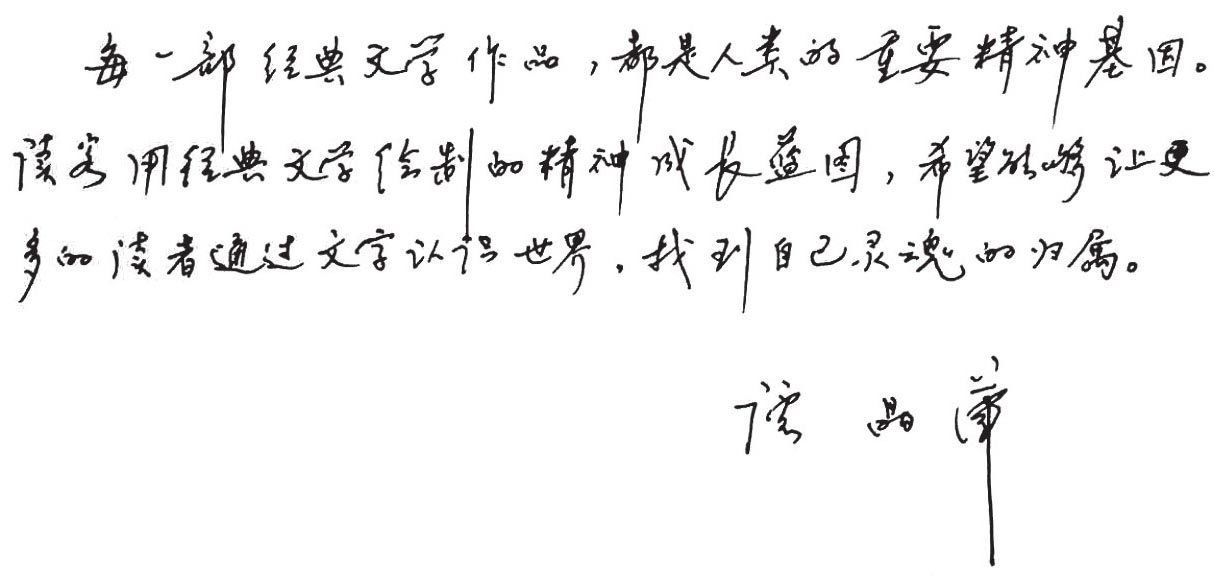 每一部经典文学作品，都是人类的重要精神基因。
读客用经典文学绘制的精神成长蓝图，希望能够让更
多的读者通过文字认识世界，找到自己灵魂的归属。
晶